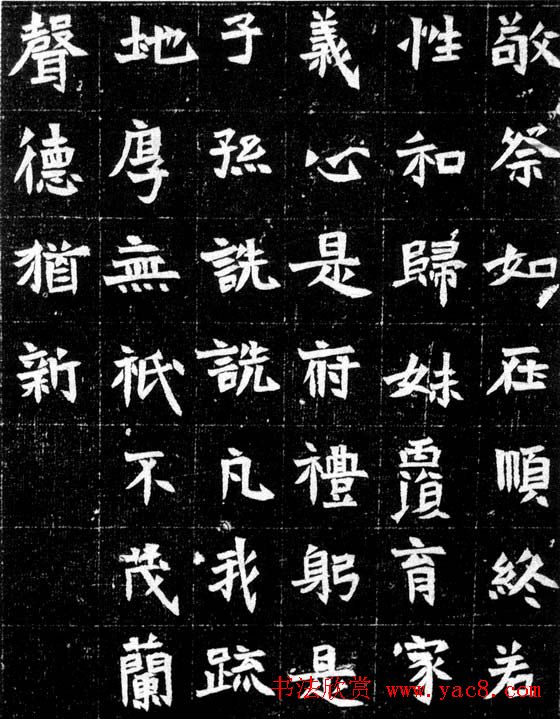 敬祭如在順終若
性和歸妹育家
義心是府禮躬是
子孫詵詵凡我疏
地厚無祇不茂蘭
聲德猶新
书法欣赏 www.yac8.com